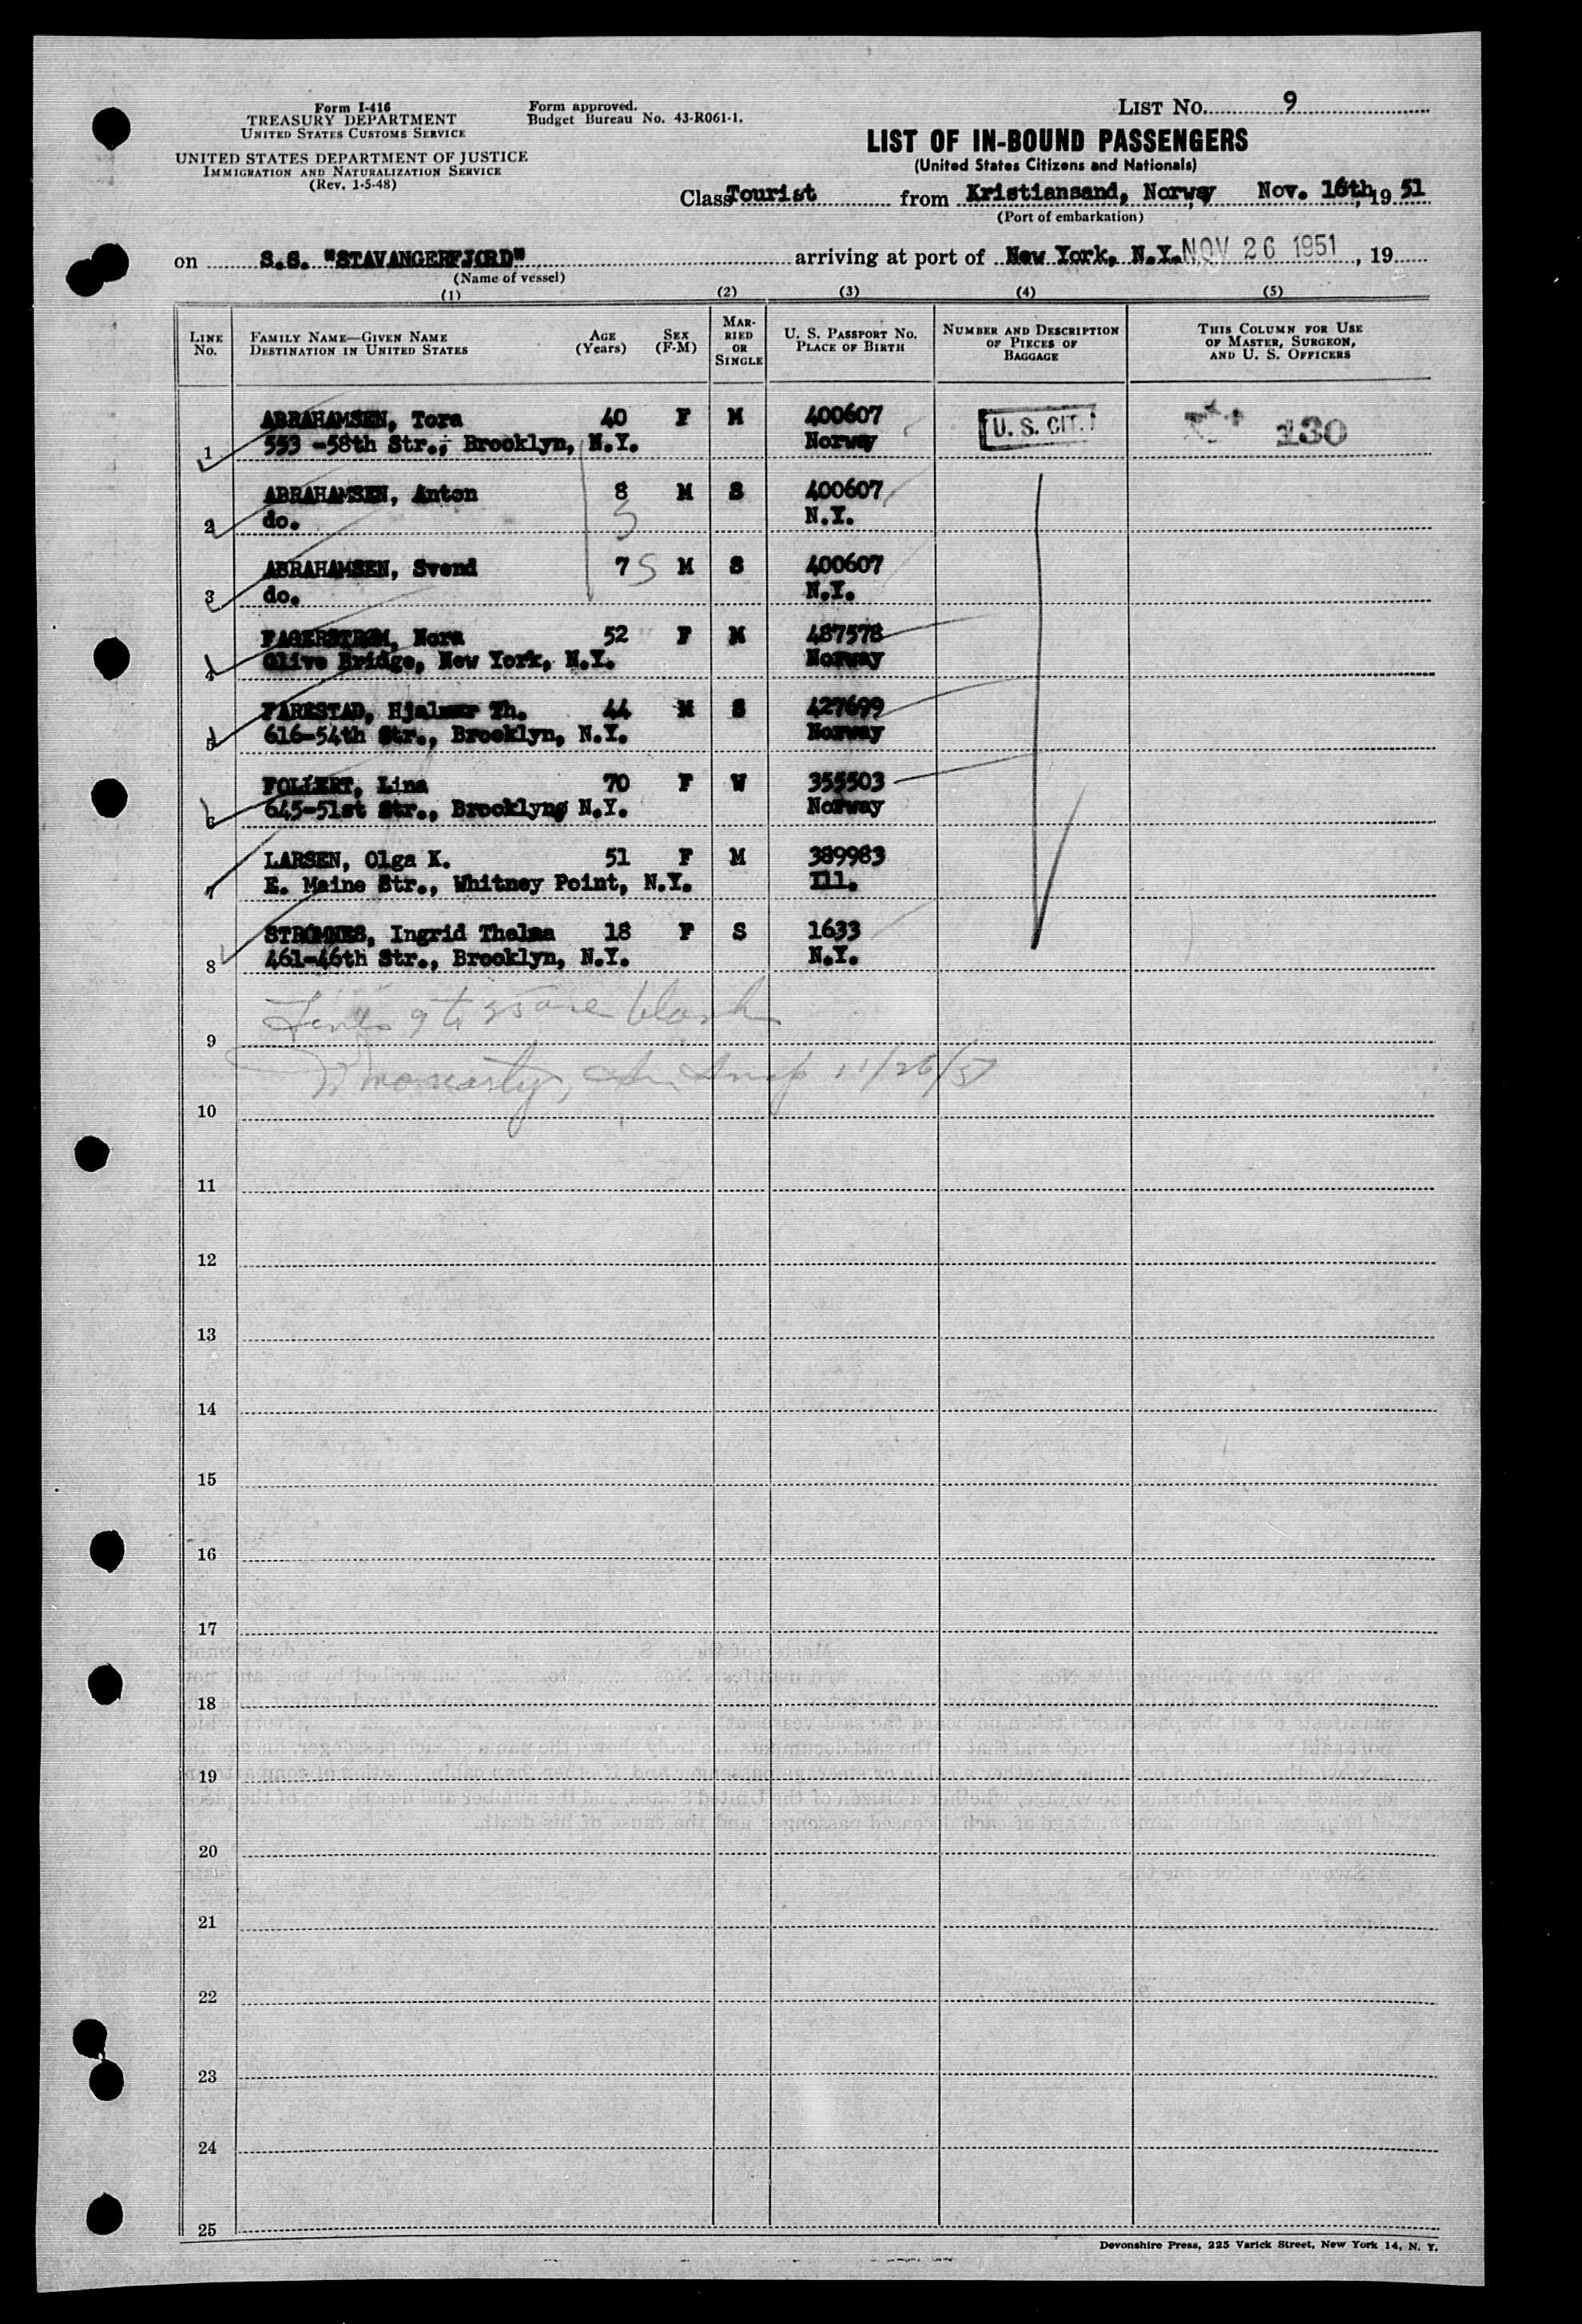 Form I-416
TREASURY DEPARTMENT
UNITED STATES CUSTOMS SERVICE
UNITED STATES DEPARTMENT OF JUSTICE
IMMIGRATION AND NATURALIZATION SERVICE
(Rev. 1-5-48)
Form approved.
Budget Bureau No. 43-R061-1.
LIST NO. 9
LIST OF IN-BOUND PASSENGERS
(United States Citizens and Nationals)
Class Tourist from Kristiansand, Norway Nov. 16th, 19 51
(Port of embarkation)
on S.S. "STAVANGERFJORD" arriving at port of New York, N.Y. NOV 26 1951, 19
(Name of vessel)
(1) (2) (3) (4) (5)
LINE NO. FAMILY NAME—GIVEN NAME DESTINATION IN UNITED STATES AGE (Years) SEX (F-M) MARRIED OR SINGLE U. S. PASSPORT NO. PLACE OF BIRTH NUMBER AND DESCRIPTION OF PIECES OF BAGGAGE THIS COLUMN FOR USE OF MASTER, SURGEON, AND U. S. OFFICERS
ABRAHAMSEN, Tora 40 F M 400607 U. S. CIT. 130
1 553 -58th Str., Brooklyn, N.Y. Norway
ABRAHAMSEN, Anton 8 M S 400607
2 do. N.Y.
ABRAHAMSEN, Svend 7 S M S 400607
3 do. N.Y.
FAGERSTRØM, Nora 52 F M 487578
4 Olive Bridge, New York, N.Y. Norway
FARESTAD, Hjalmar Th. 44 M S 427699
5 616-54th Str., Brooklyn, N.Y. Norway
Lina 70 F W 355503
6 645-51st Str., Brooklyn, N.Y. Norway
LARSEN, Olga K. 51 F M 389983
7 E. Maine Str., Whitney Point, N.Y. Ill.
STRØMNES, Ingrid Thelma 18 F S 1633
8 461-46th Str., Brooklyn, N.Y. N.Y.
Lines 9 to 25 are blank
9
Moriarty, 11/26/51
10
11
12
13
14
15
16
17
18
19
20
21
22
23
24
25
Devonshire Press, 225 Varick Street, New York 14, N. Y.